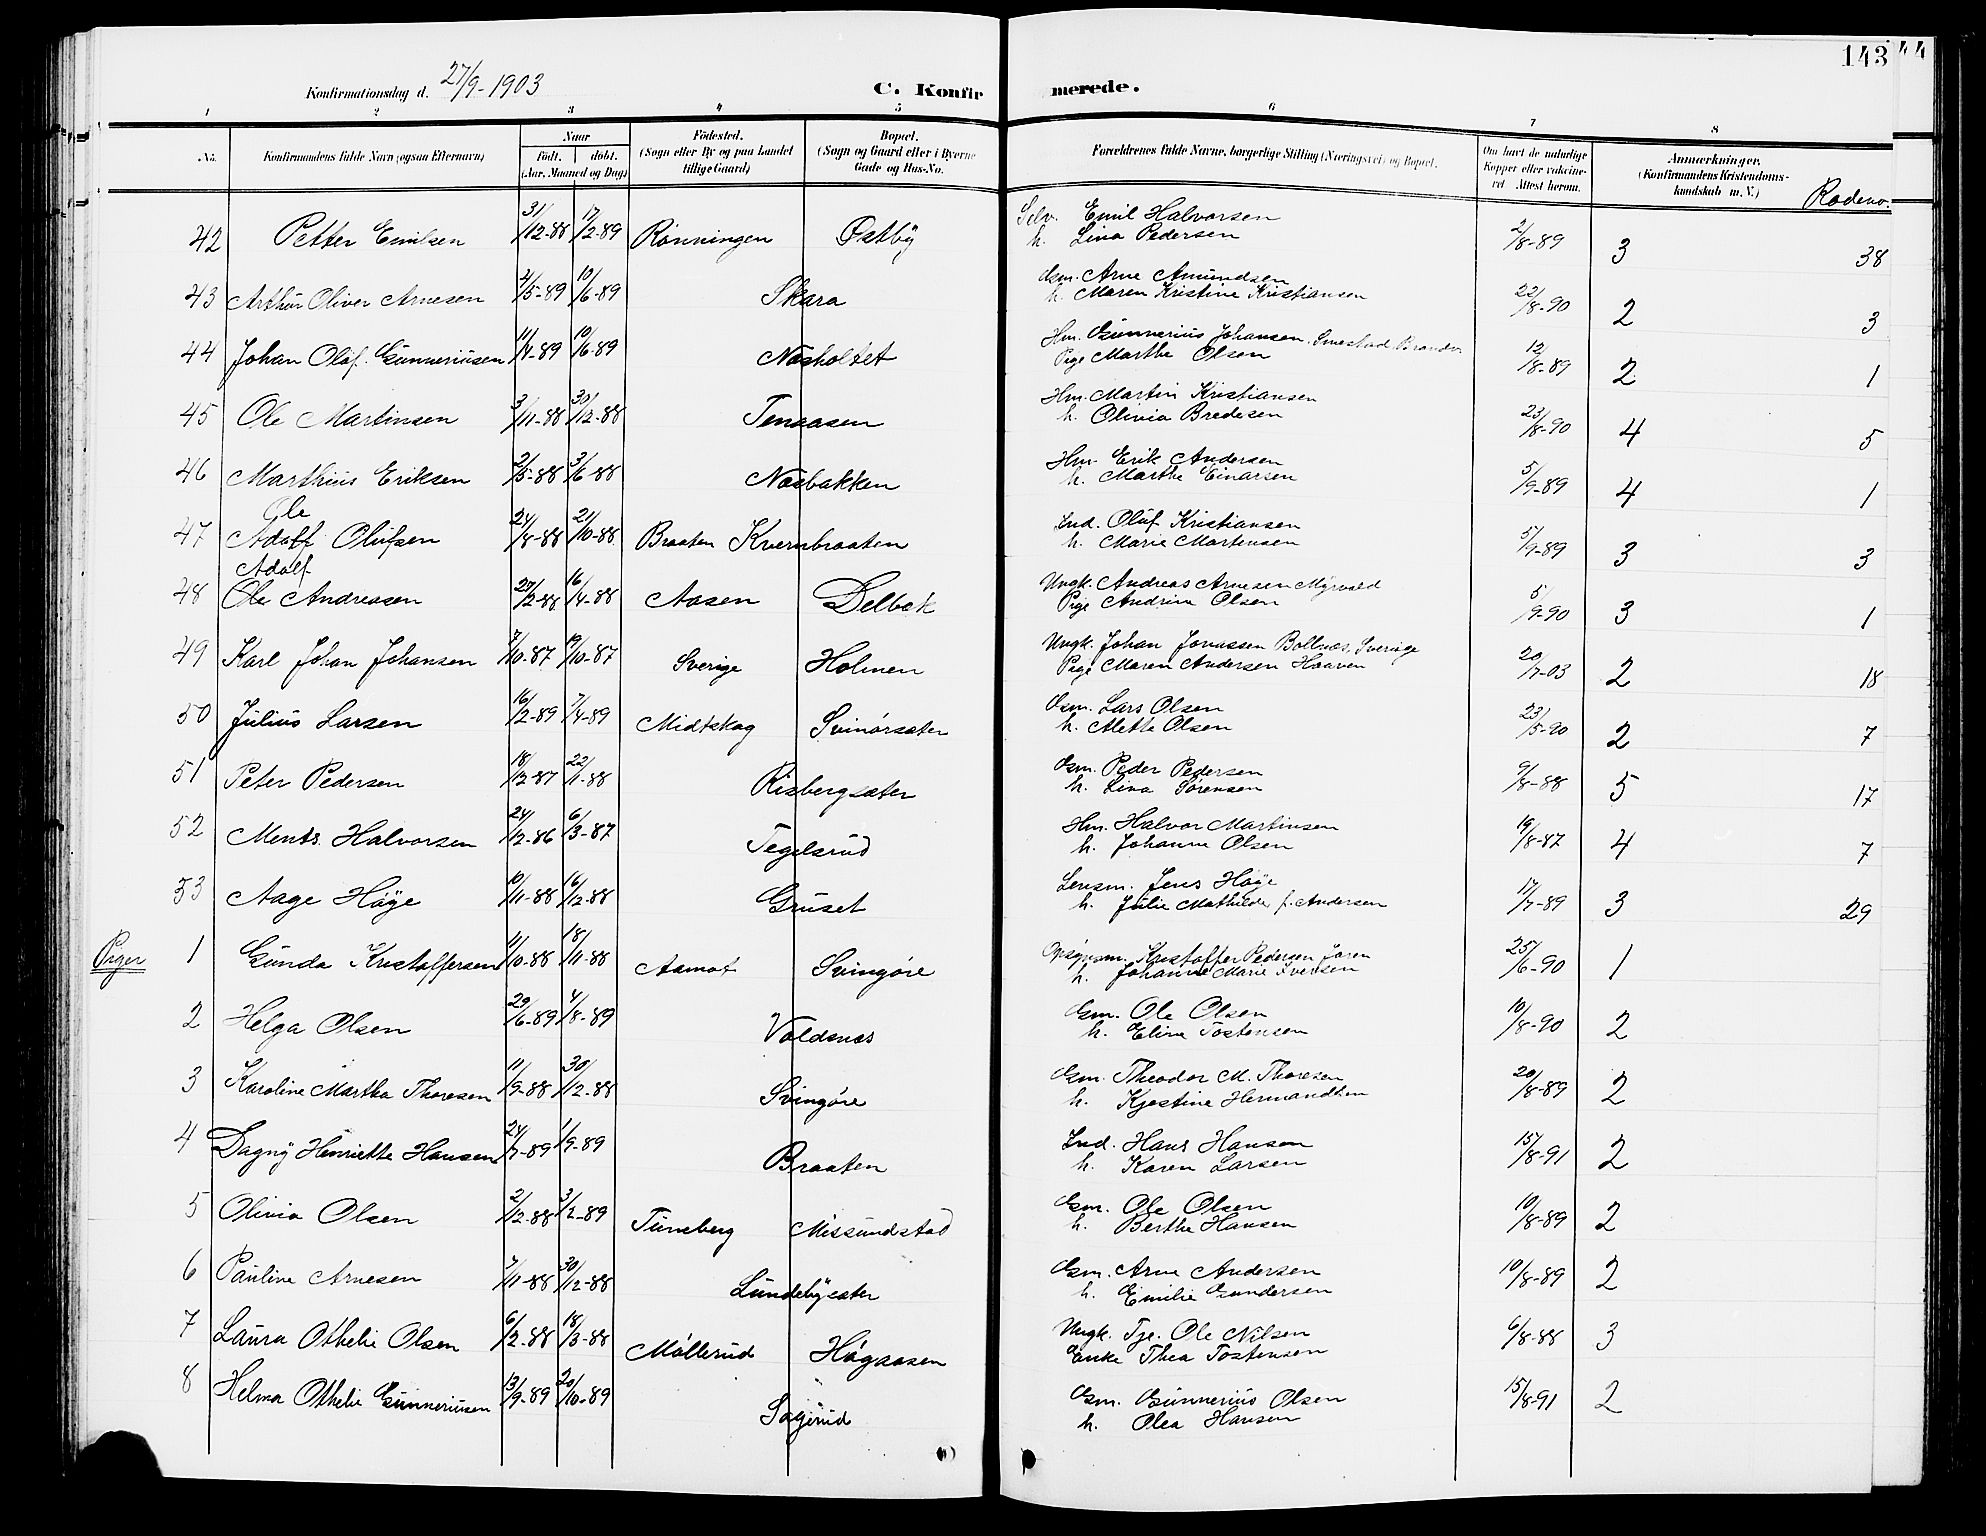 143
44
Konfirmationsdag d. 27/9-1903
C. Konfirmerede.
1 2 3 4 5 6 7 8
No. Konfirmandens fulde Navn (ogsaa Efternavn)
Naar
født. døbt.
(Aar, Maaned og Dag)
Fødested.
(Sogn eller By og paa Landet tillige Gaard)
Bopæl.
(Sogn og Gaard eller i Byerne Gade og Hus-No.
Forældrenes fulde Navne, borgerlige Stilling (Næringsvei) og Bopæl.
Om havt de naturlige Kopper eller vaccineret Attest herom.
Anmærkninger.
(Konfirmandens Kristendomskundskab m. V.)
Rodeno.
42 Petter Emilsen 31/12-88 17/2-89 Rønningen Østby Selv. Emil Halvorsen 2/8-89 3 38
h. Lina Pedersen
43 Arthur Oliver Arnesen 4/5-89 10/6-89 Skara Gm. Arne Amundsen 22/8-90 2 3
h. Maren Kristine Kristiansen
44 Johan Olaf Gunneriusen 11/4-89 10/6-89 Næsholtet Hm. Gunnerius Johansen, Smestad Brandv. 12/8-89 2 1
Pige Marthe Olsen
45 Ole Martinsen 3/11-88 30/12-88 Tenaasen Hm. Martin Kristiansen 23/8-90 4 5
h. Olivia Bredesen
46 Marthius Eriksen 2/5-88 3/6-88 Næsbakken Hm. Erik Andersen 5/9-89 4 1
h. Marthe Einarsen
Ole
47 Adolf Olufsen 24/8-88 21/10-88 Braaten Kvernbraaten Ind. Oluf Kristiansen 5/9-89 3 3
h. Marie Martensen
Adolf
48 Ole Andreasen 27/2-88 16/4-88 Aasen Delbek Ungk. Andreas Arnesen Myrvold 5/9-90 3 1
Pige Andrine Olsen
49 Karl Johan Johansen 7/10-87 19/10-87 Sverige Holmen Ungk. Johan Jonassen Bollnæs, Sverige 20/7-03 2 18
Pige Maren Andersen Haaven
50 Julius Larsen 16/2-89 7/4-89 Midtskog Svinørsæter Gm. Lars Olsen 23/5-90 2 7
h. Alette Olsen
51 Peter Pedersen 18/12-87 22/1-88 Risbergsæter Gm. Peder Pedersen 9/8-88 5 17
h. Lina Sørensen
52 Ments Halvorsen 24/12-86 6/3-87 Tegelsrud Hm. Halvor Martinsen 19/8-87 4 7
h. Johanne Olsen
53 Aage Høye 10/11-88 16/12-88 Gruset Lensm. Jens Høye 17/7-89 3 29
h. Julie Mathilde f. Andersen
Piger 1 Gunda Kristoffersen 11/10-88 18/11-88 Aamot Svingøre Opsynsm. Kristoffer Pedersen Jaren 25/6-90 1
h. Johanne Marie Iversen
2 Helga Olsen 29/6-89 4/8-89 Voldsnæs Gm. Ole Olsen 10/8-90 2
h. Eline Tostensen
3 Karoline Martha Thoresen 11/9-88 30/12-88 Svingøre Gm. Theodor M. Thoresen 20/8-89 2
h. Kjestine Hermandsen
4 Dagny Henriette Hansen 24/7-89 1/9-89 Braaten Ind. Hans Hansen 15/8-91 2
h. Karen Larsen
5 Olivia Olsen 2/12-88 3/2-89 Tuneberg Missundstad Gm. Ole Olsen 10/8-89 2
h. Berthe Hansen
6 Pauline Arnesen 7/11-88 30/12-88 Lundebysæter Gm. Arne Andersen 10/8-89 2
h. Emilie Gundersen
7 Laura Othelie Olsen 6/2-88 18/3-88 Møllerud Høgaasen Ungk. Tje. Ole Nilsen 6/8-88 3
Enke Thea Tostensen
8 Helma Othelie Gunneriusen 13/9-89 20/10-89 Sagerud Gm. Gunnerius Olsen 15/8-91 2
h. Olea Hansen